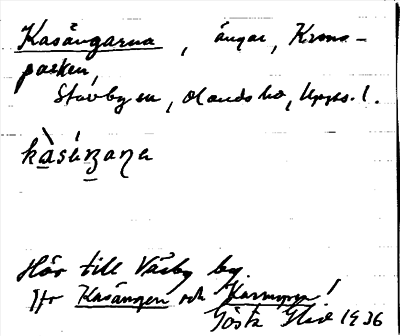 Kasängarna, ängar, Krons-
parken,
Stavby sn, Olands hd, Upps. l.
kàsáŋaŋa
Hör till Väsby by.
Jfr Kasängen och
Gösta 1936